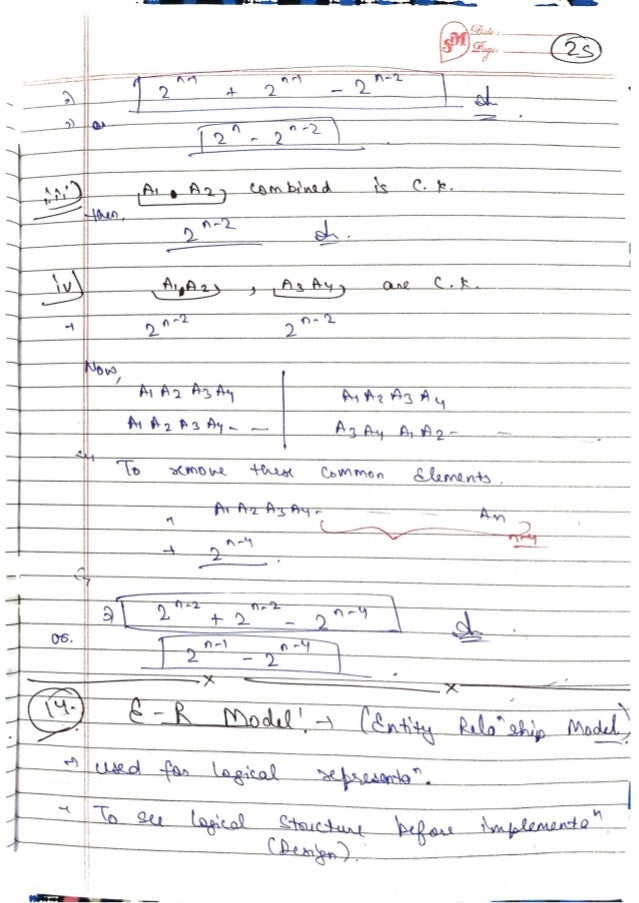 SM Date :
Page :
25
⇒ 2^{n-1} + 2^{n-1} - 2^{n-2}
⇒ or 2^n - 2^{n-2}
iii) A1 A2, combined is C.K.
then,
2^{n-2}
iv) A1, A2, , A3 A4, are C.K.
→ 2^{n-2} 2^{n-2}
Now,
A1 A2 A3 A4 | A1 A2 A3 A4
A1 A2 A3 A4 - - | A3 A4 A1 A2 - -
To remove these common Elements.
A1 A2 A3 A4 - - - An
n-4
→ 2^{n-4}
⇒ 2^{n-2} + 2^{n-2} - 2^{n-4}
or. 2^{n-1} - 2^{n-4}
x x
14. E-R Model : → (Entity Rela^n ship Model)
→ Used for logical representa^n.
→ To see logical structure before implementa^n
(Design).